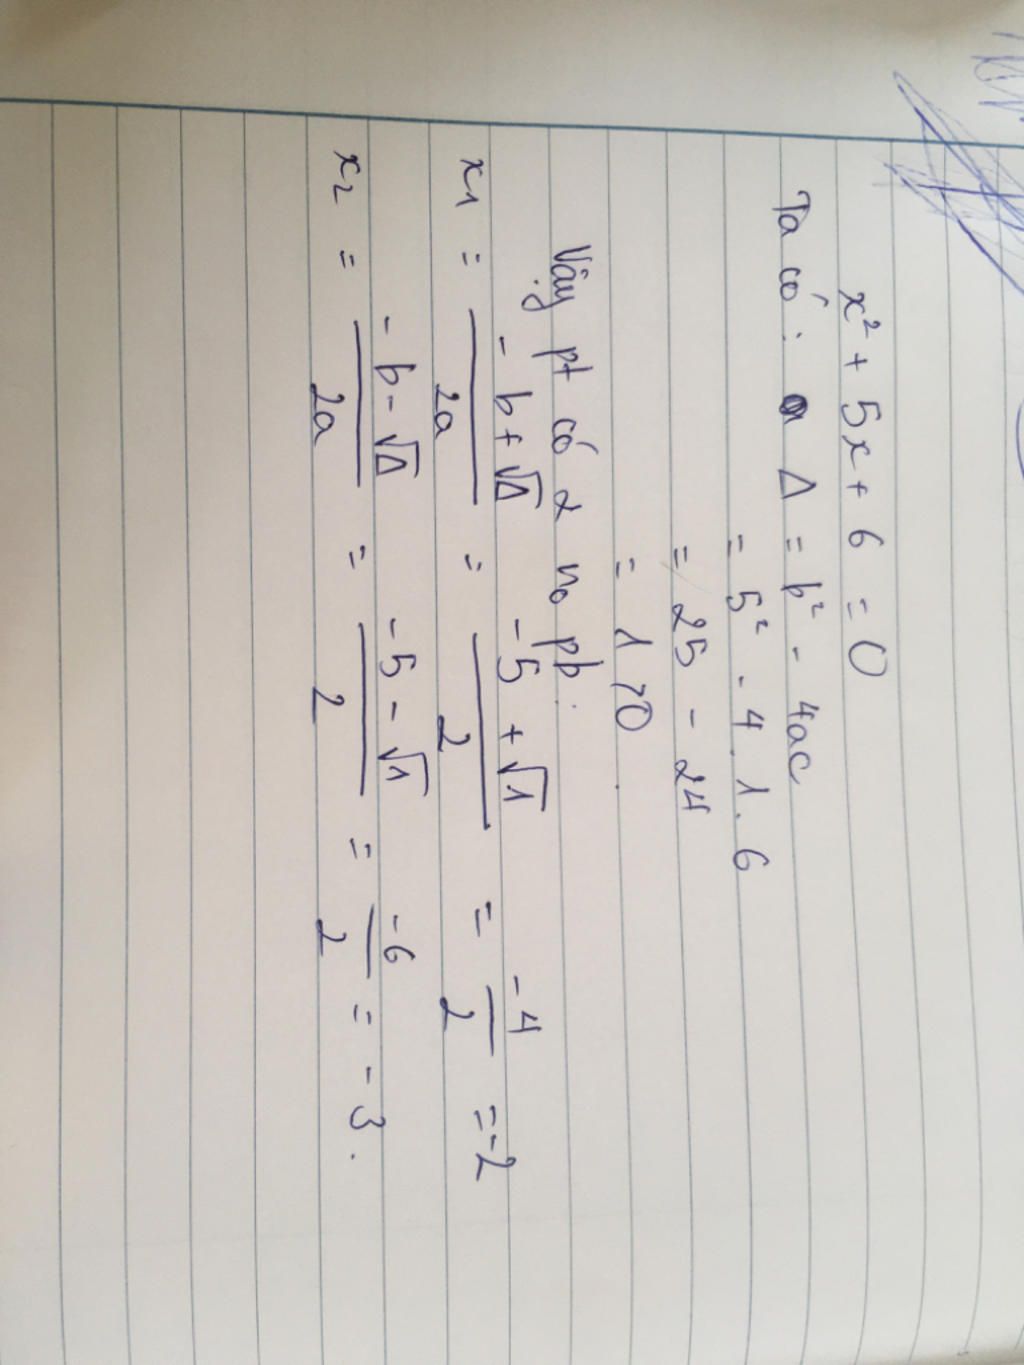 x² + 5x + 6 = 0
Ta có: Δ = b² - 4ac
= 5² - 4.1.6
= 25 - 24
= 1 > 0.
Vậy pt có 2 no pb:
x₁ = (-b + √Δ)/2a = (-5 + √1)/2 = -4/2 = -2
x₂ = (-b - √Δ)/2a = (-5 - √1)/2 = -6/2 = -3.